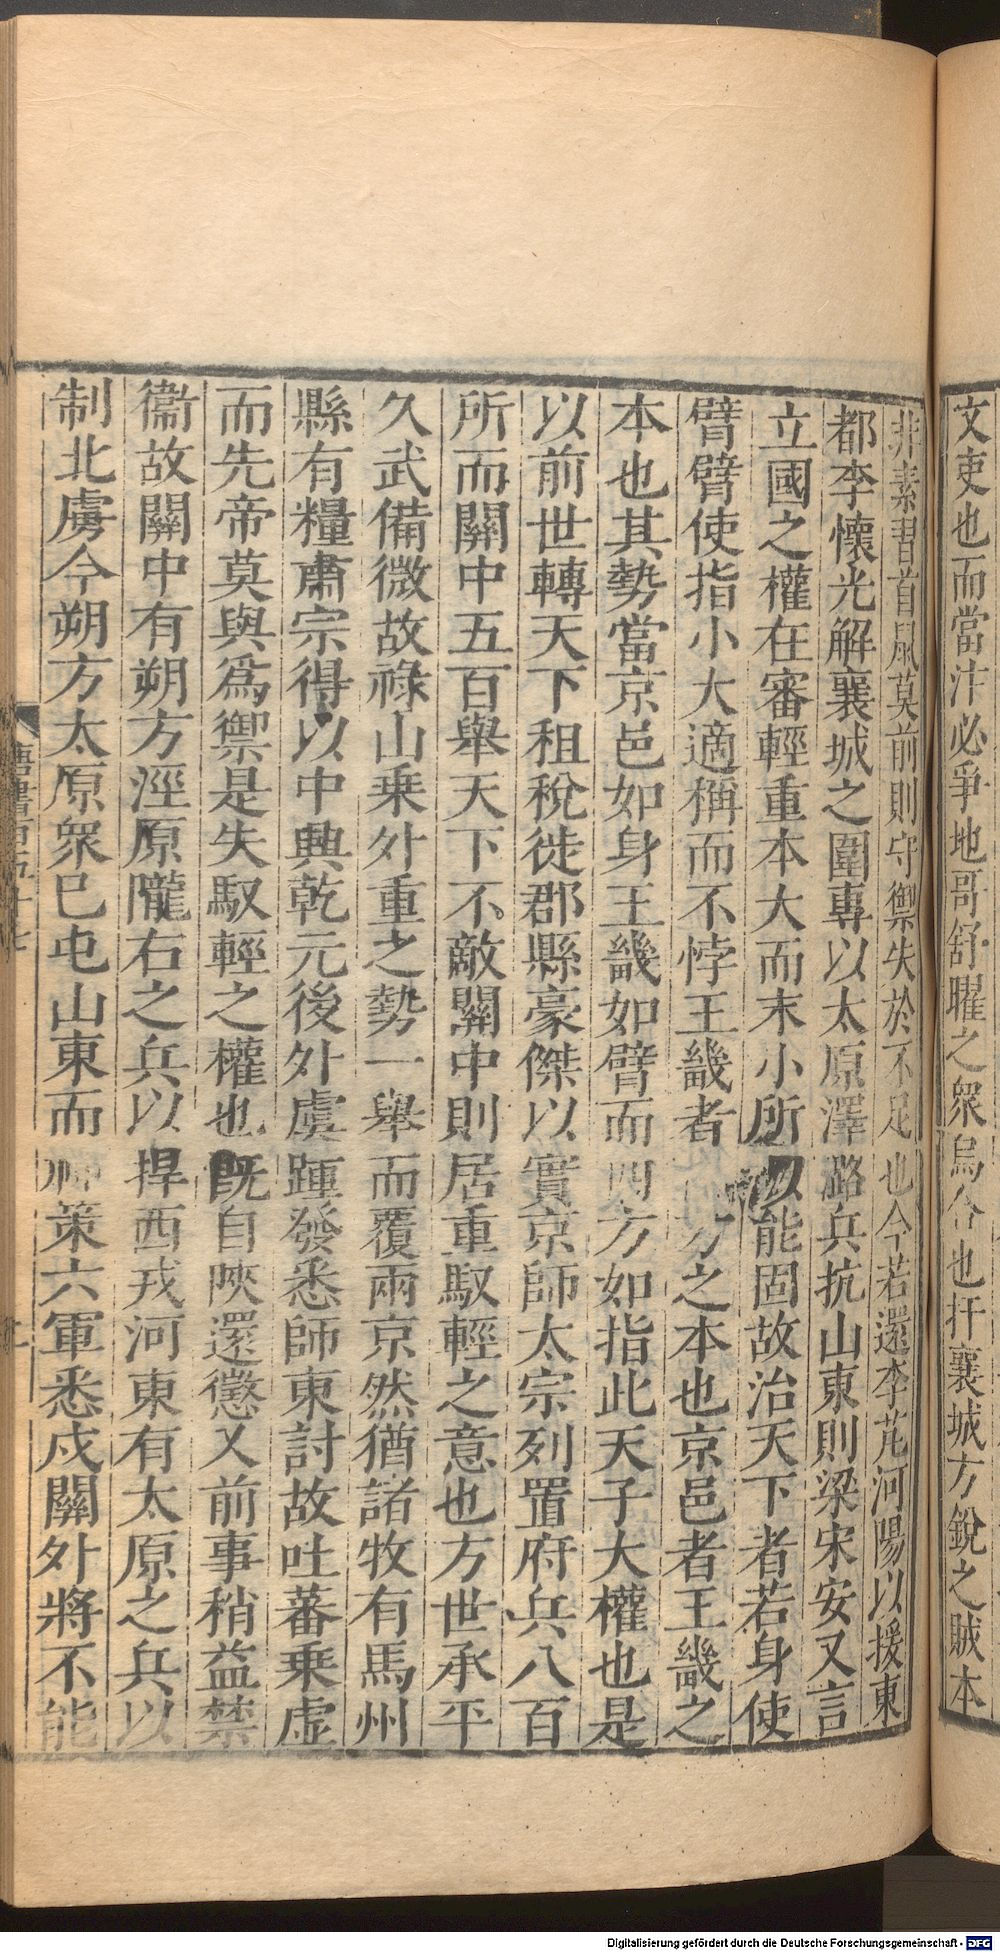 文吏也而當汴必爭地哥舒曜之衆烏合也扞襄城方銳之賊本
非素習首鼠莫前則守禦失於不足也今若還李芃河陽以援東
都李懷光解襄城之圍專以太原澤潞兵抗山東則梁宋安又言
立國之權在審輕重本大而末小所以能固故治天下者若身使
臂臂使指小大適稱而不悖王畿者四方之本也京邑者王畿之
本也其勢當京邑如身王畿如臂而四方如指此天子大權也是
以前世轉天下租稅徙郡縣豪傑以實京師太宗列置府兵八百
所而關中五百舉天下不敵關中則居重馭輕之意也方世承平
久武備微故祿山乘外重之勢一舉而覆兩京然猶諸牧有馬州
縣有糧肅宗得以中興乾元後外虞踵發悉師東討故吐蕃乘虛
而先帝莫與爲禦是失馭輕之權也旣自陝還懲乂前事稍益禁
衞故關中有朔方涇原隴右之兵以捍西戎河東有太原之兵以
制北虜今朔方太原衆已屯山東而神策六軍悉戍關外將不能
唐書百五十七
Digitalisierung gefördert durch die Deutsche Forschungsgemeinschaft - DFG